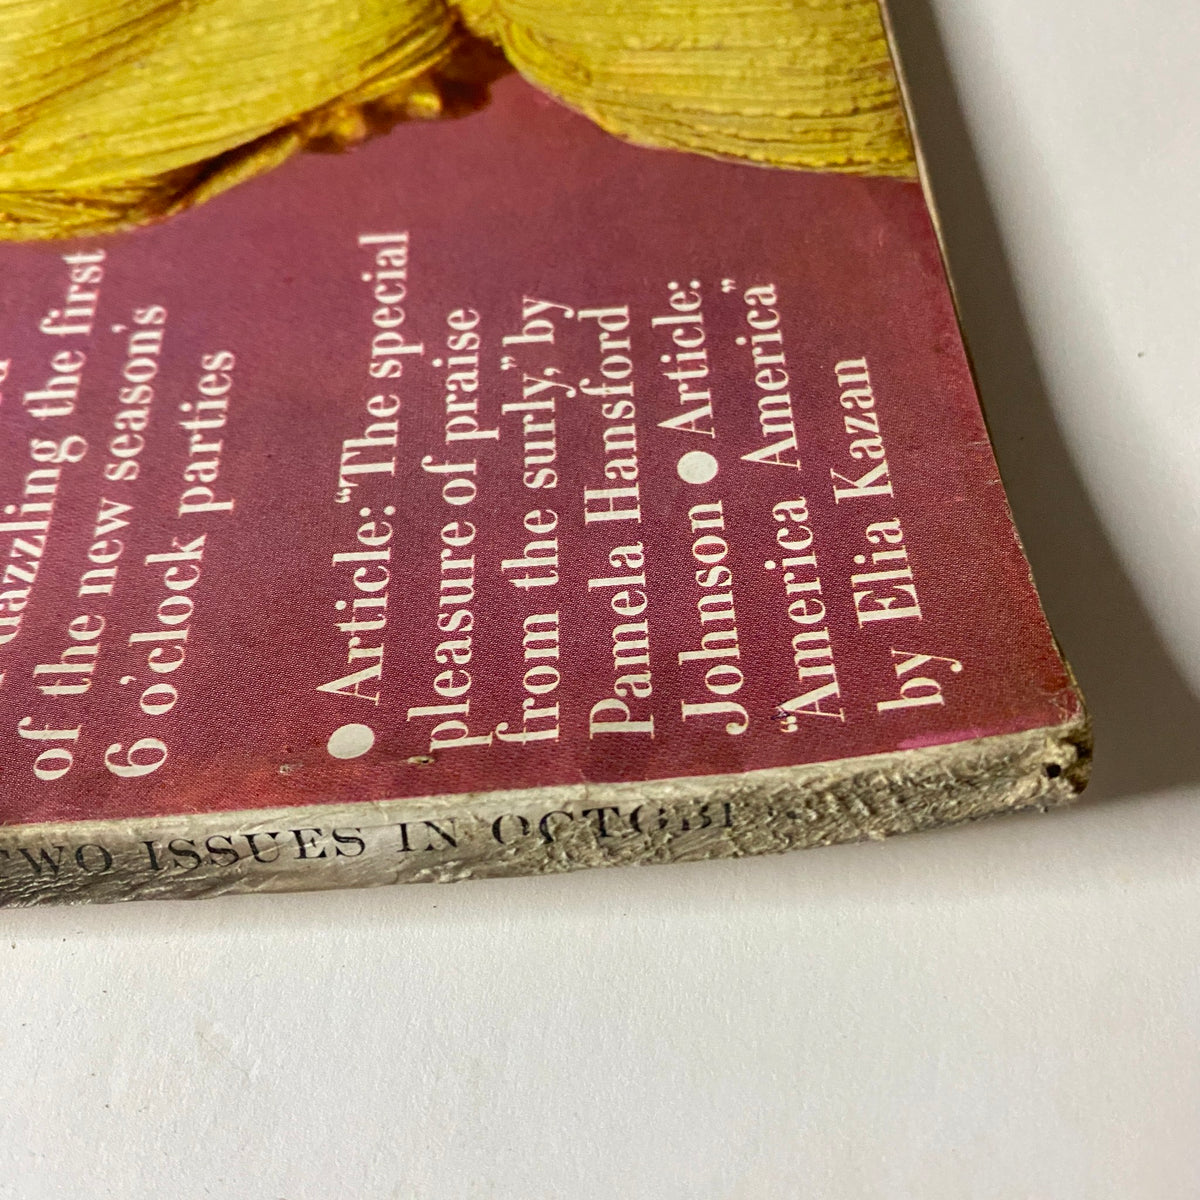 dazzling the first
of the new season's
6 o'clock parties
● Article: “The special
pleasure of praise
from the surly,” by
Pamela Hansford
Johnson ● Article:
“America America”
by Elia Kazan
TWO ISSUES IN